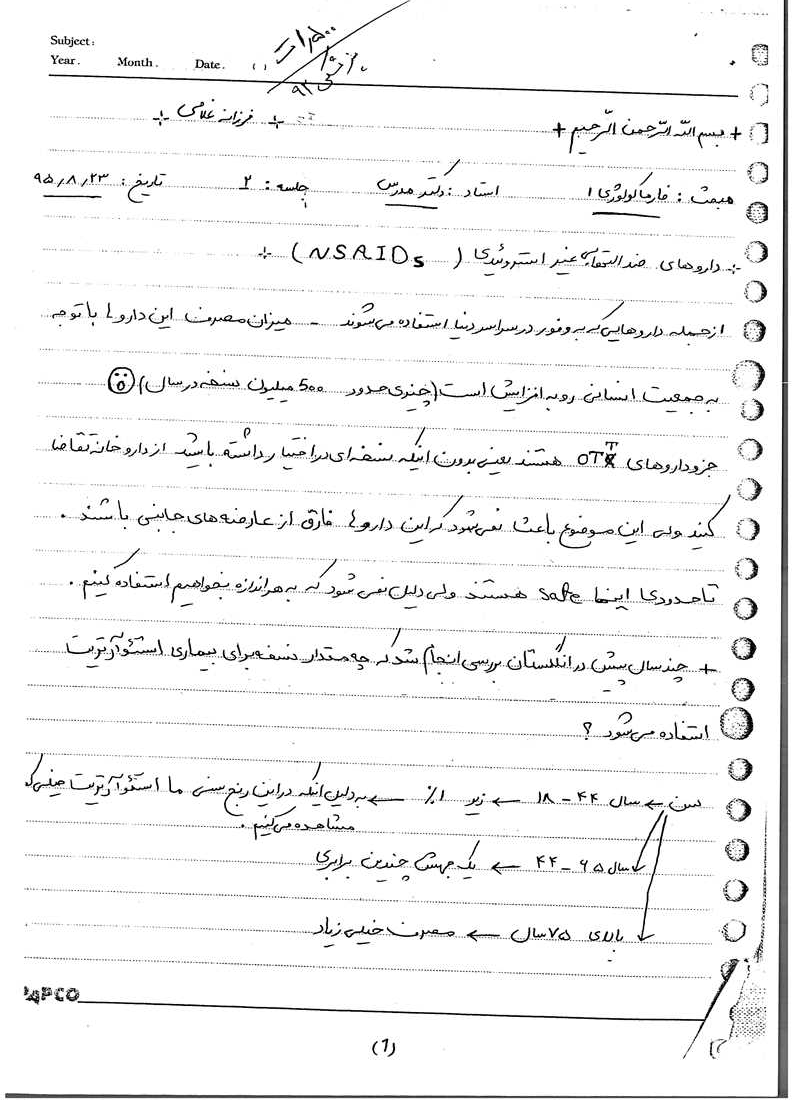 Subject:
Year. Month. Date. ( )
+ بسم الله الرّحمن الرّحیم + + فرزانه غلامی +
مبحث : فارماکولوژی ۱ استاد : دکتر مدرس جلسه : ۲ تاریخ : ۹۵٫۸٫۲۳
+ داروهای ضد التهاب غیر استروئیدی ( NSAIDs ) +
از جمله داروهایی که به وفور در سراسر دنیا استفاده می‌شوند - میزان مصرف این داروها با توجه
به جمعیت انسانی رو به افزایش است (چیزی حدود ۵۰۰ میلیون نسخه در سال)
جزو داروهای OTC هستند یعنی بدون اینکه نسخه‌ای در اختیار داشته باشید از داروخانه تقاضا
کنید ولی این موضوع باعث نمی‌شود که این داروها فارق از عارضه‌های جانبی باشند .
تا حدودی اینها safe هستند ولی دلیل نمی‌شود که به هر اندازه بخواهیم استفاده کنیم .
+ چند سال پیش در انگلستان بررسی انجام شد که چه مقدار نسخه برای بیماری استئوآرتریت
استفاده می‌شود ؟
سن ← سال ۴۴ - ۱۸ ← زیر ۱٪ ← به دلیل اینکه در این رنج سنی ما استئوآرتریت خیلی کم
مشاهده می‌کنیم .
سال ۶۵ - ۴۴ ← یک جهش چندین برابری
بالای ۷۵ سال ← مصرف خیلی زیاد
PAPCO
(1)